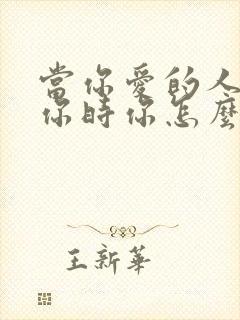 當你愛的人
你時你怎麼
王新華